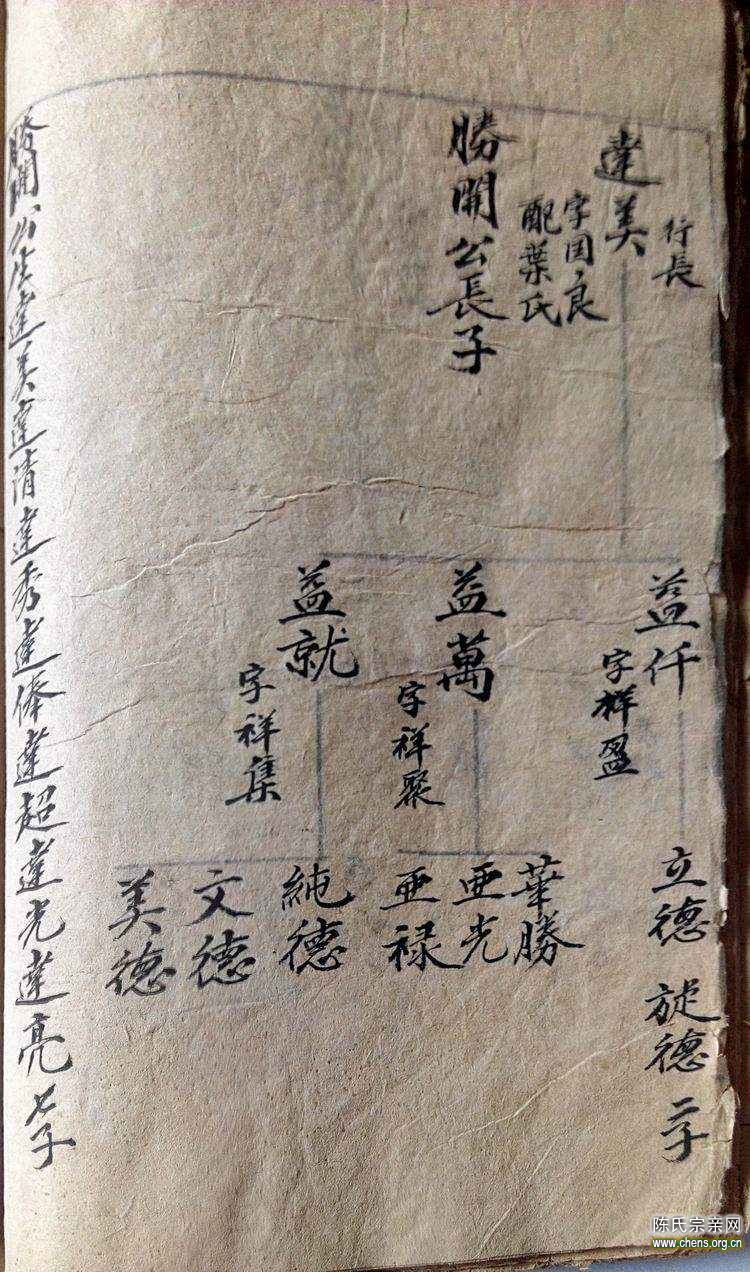 行長
達美
字国良
配葉氏
勝開公長子
益仟
字祥盈
立德 旋德 二子
益萬
字祥聚
華勝
亜光
亜禄
益就
字祥集
純德
文德
美德
勝開公生達美達清達秀達俸達超達光達亮七子
陈氏宗亲网
www.chens.org.cn